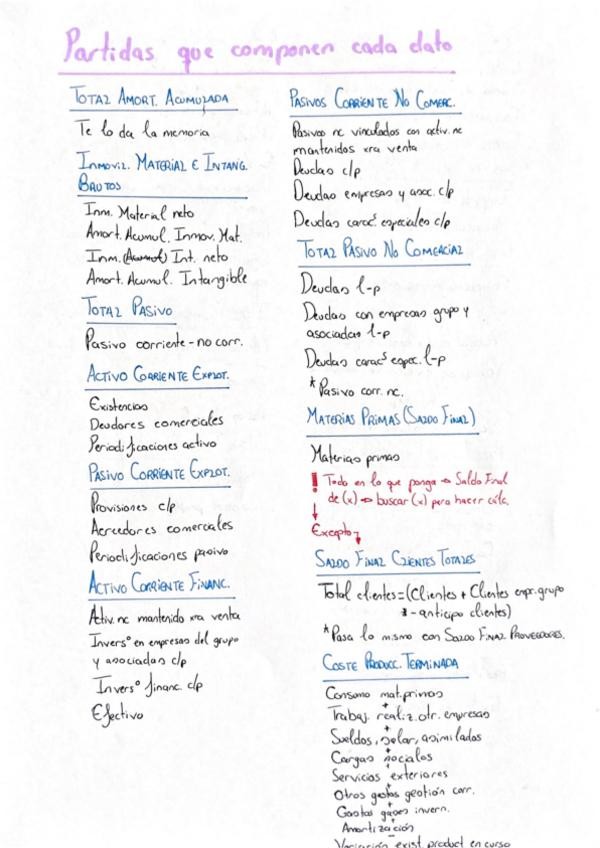 Partidas que componen cada dato
TOTAL AMORT. ACUMULADA
Te lo da la memoria
INMOVIL. MATERIAL E INTANG.
BRUTOS
Inm. Material neto
Amort. Acumul. Inmov. Mat.
Inm. Int. neto
Amort. Acumul. Intangible
TOTAL PASIVO
Pasivo corriente - no corr.
ACTIVO CORRIENTE EXPLOT.
Existencias
Deudores comerciales
Periodificaciones activo
PASIVO CORRIENTE EXPLOT.
Provisiones c/p
Acreedores comerciales
Periodificaciones pasivo
ACTIVO CORRIENTE FINANC.
Activ. nc mantenido xra venta
Invers° en empresas del grupo
y asociadas c/p
Invers° financ. c/p
Efectivo
PASIVOS CORRIENTE NO COMERC.
Pasivos nc vinculados con activ. nc
mantenidos xra venta
Deudas c/p
Deudas empresas y asoc. c/p
Deudas caracs especiales c/p
TOTAL PASIVO NO COMERCIAL
Deudas l-p
Deudas con empresas grupo y
asociadas l-p
Deudas caracs espec. l-p
* Pasivo corr. nc.
MATERIAS PRIMAS (SALDO FINAL)
Materias primas
! Todo en lo que ponga → Saldo Final
de (x) → buscar (x) para hacer cálc.
Excepto
SALDO FINAL CLIENTES TOTALES
Total clientes = (Clientes + Clientes empr. grupo
- anticipo clientes)
* Pasa lo mismo con SALDO FINAL PROVEEDORES.
COSTE PRODUCC. TERMINADA
Consumo mat. primas
+
Trabaj. realiz. otr. empresas
+
Sueldos, salar, asimilados
+
Cargas sociales
+
Servicios exteriores
+
Otros gastos gestión corr.
+
Gastos invern.
+
Amortización
Variación exist. product en curso